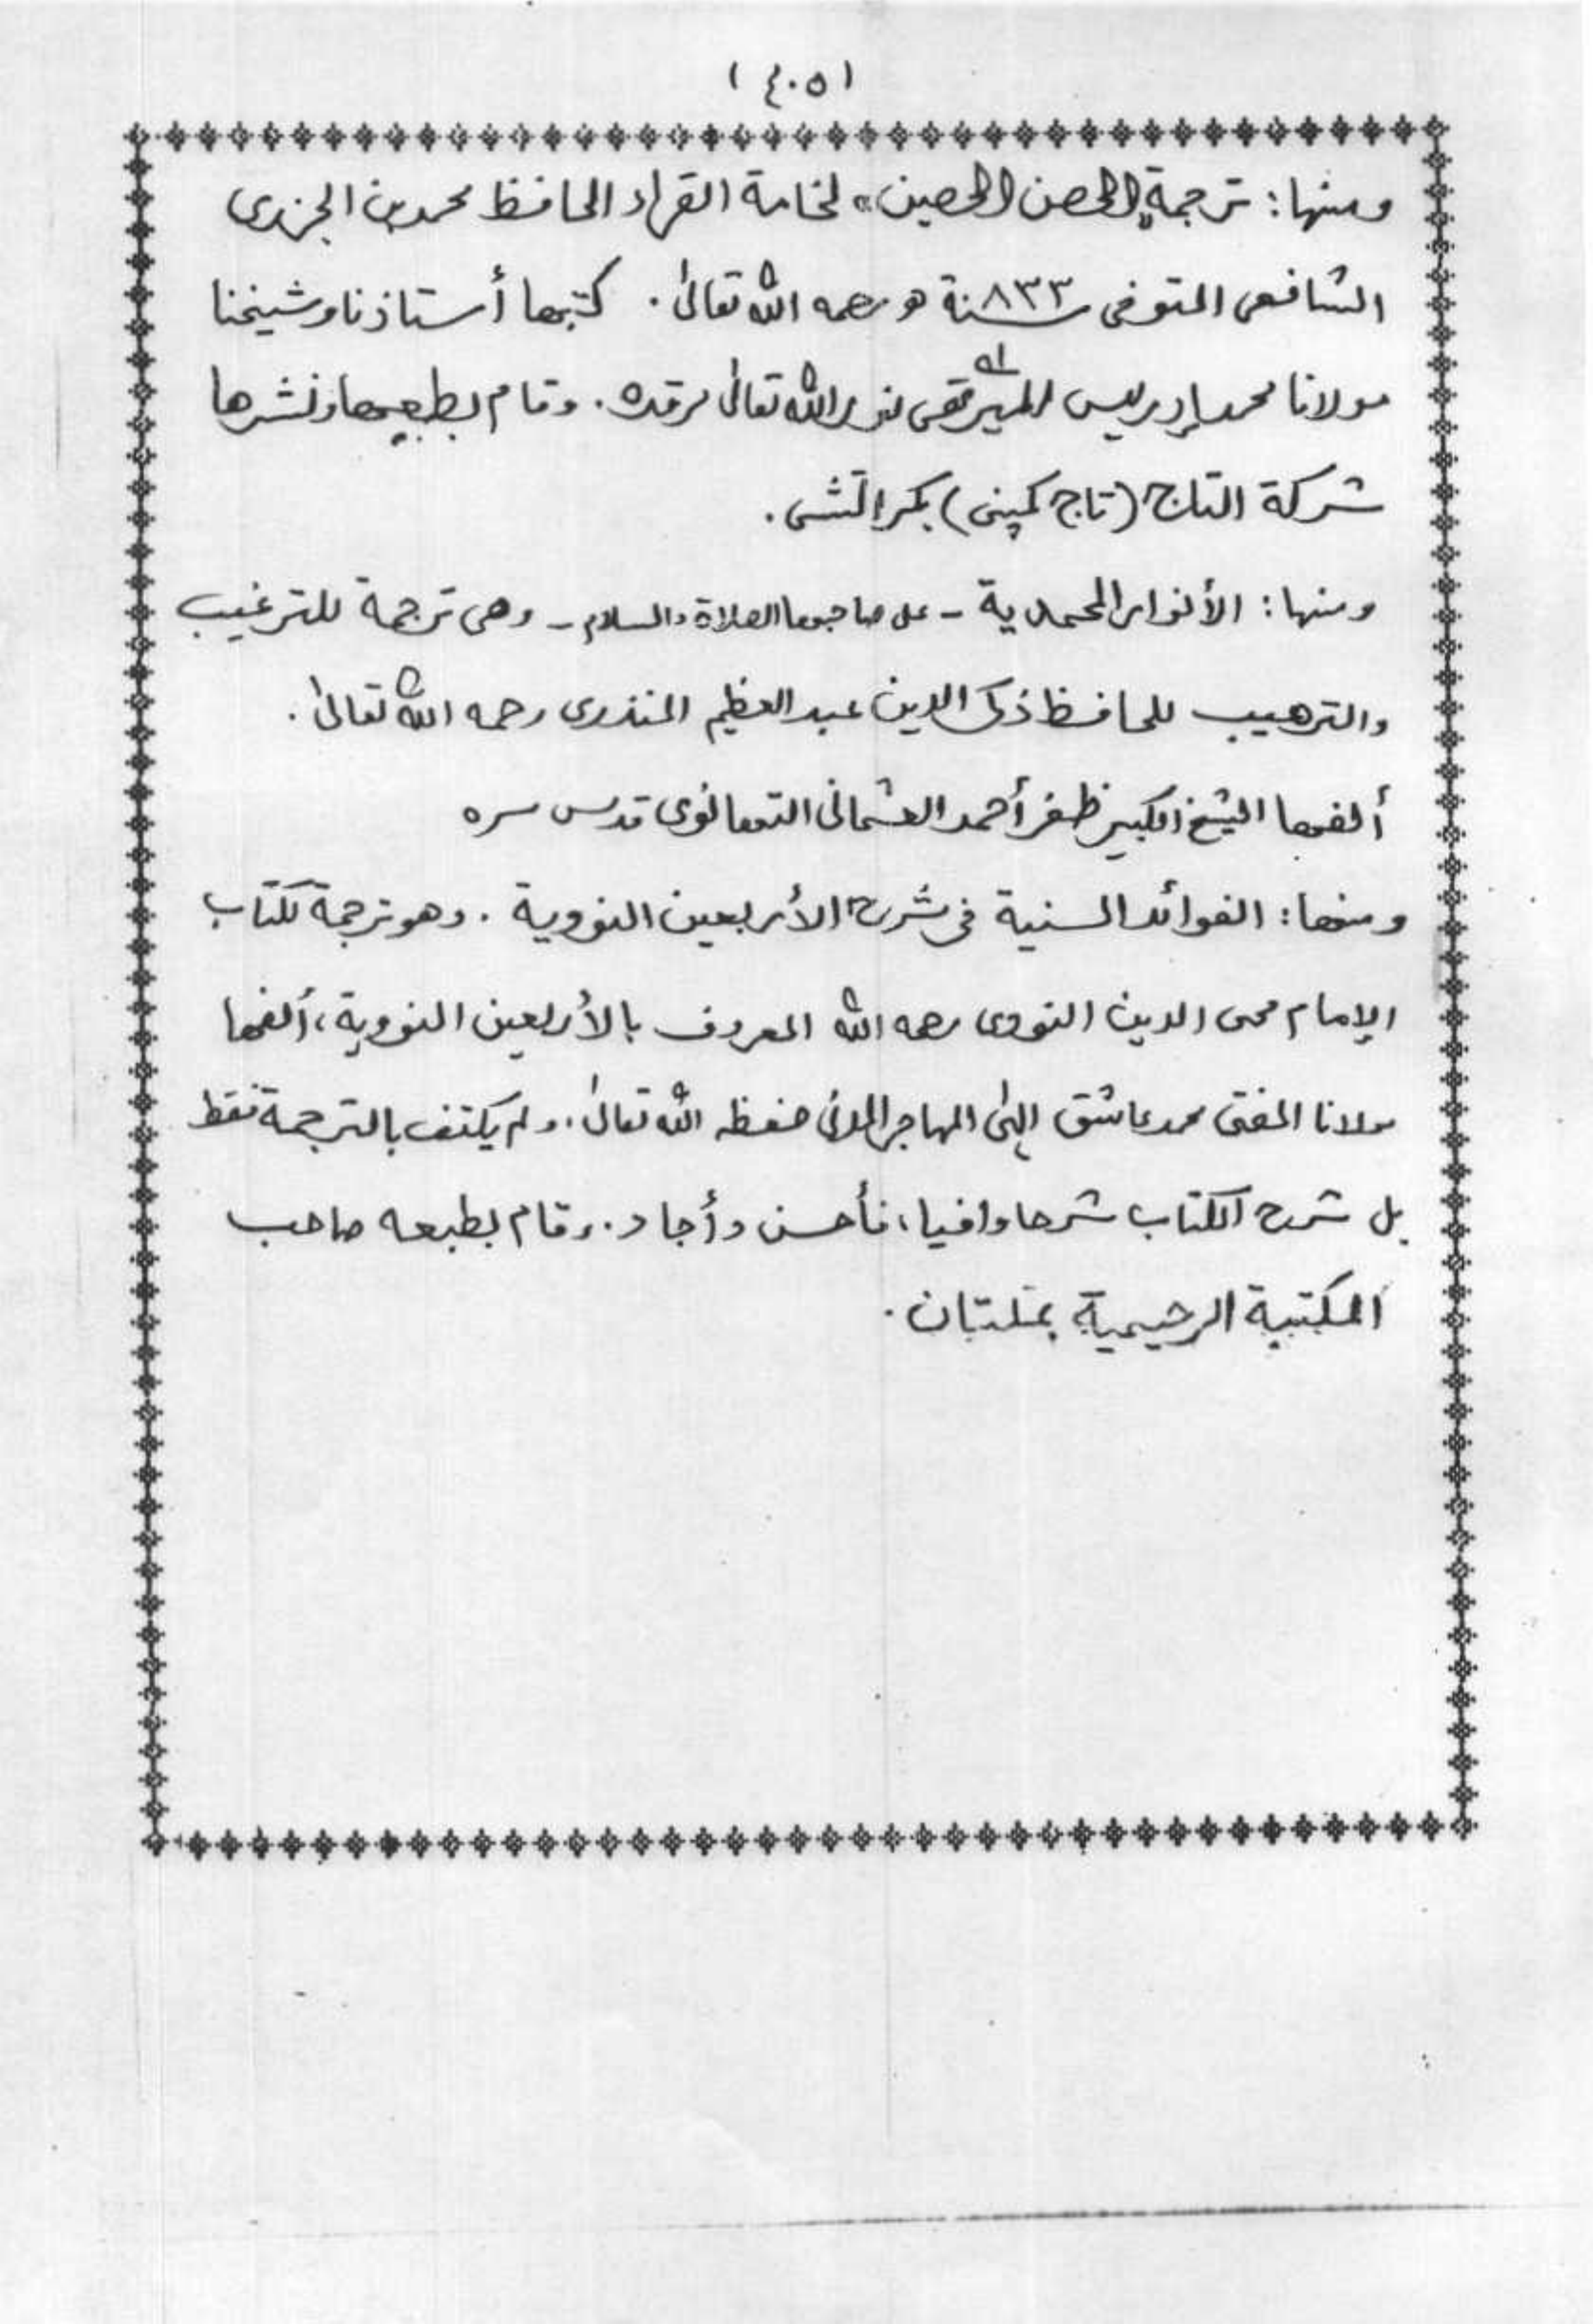 (٤٠٥)
ومنها: ترجمة «الحصن الحصين» لخاتمة القراء الحافظ محمد بن الجزرى
الشافعى المتوفى سنة ٨٣٣ هـ رحمه الله تعالىٰ. كتبها أستاذنا وشيخنا
مولانا محمد إدريس الميرتهى نور الله تعالىٰ مرقده. وقام بطبعها ونشرها
شركة التاج (تاج كمپنى) بكراتشى.
ومنها: الأنوار المحمدية - على صاحبها الصلاة والسلام - وهى ترجمة للترغيب
والترهيب للحافظ ذكى الدين عبد العظيم المنذرى رحمه الله تعالىٰ.
ألفها الشيخ الكبير ظفر أحمد العثمانى التهانوى قدس سره
ومنها: الفوائد السنية فى شرح الأربعين النووية. وهو ترجمة لكتاب
الإمام محى الدين النووى رحمه الله المعروف بالأربعين النووية، ألفها
مولانا المفتى محمد عاشق إلٰهى المهاجر المدنى حفظه الله تعالىٰ. ولم يكتف بالترجمة فقط
بل شرح الكتاب شرحا وافيا، فأحسن وأجاد. وقام بطبعه صاحب
المكتبة الرحيمية بملتان.